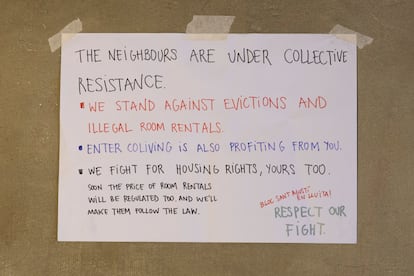 THE NEIGHBOURS ARE UNDER COLLECTIVE
RESISTANCE.
WE STAND AGAINST EVICTIONS AND
ILLEGAL ROOM RENTALS.
ENTER COLIVING IS ALSO PROFITING FROM YOU.
WE FIGHT FOR HOUSING RIGHTS, YOURS TOO.
SOON THE PRICE OF ROOM RENTALS
WILL BE REGULATED TOO. AND WE'LL
MAKE THEM FOLLOW THE LAW.
BLOC SANT AGUSTÍ
EN LLUITA!
RESPECT OUR
FIGHT.